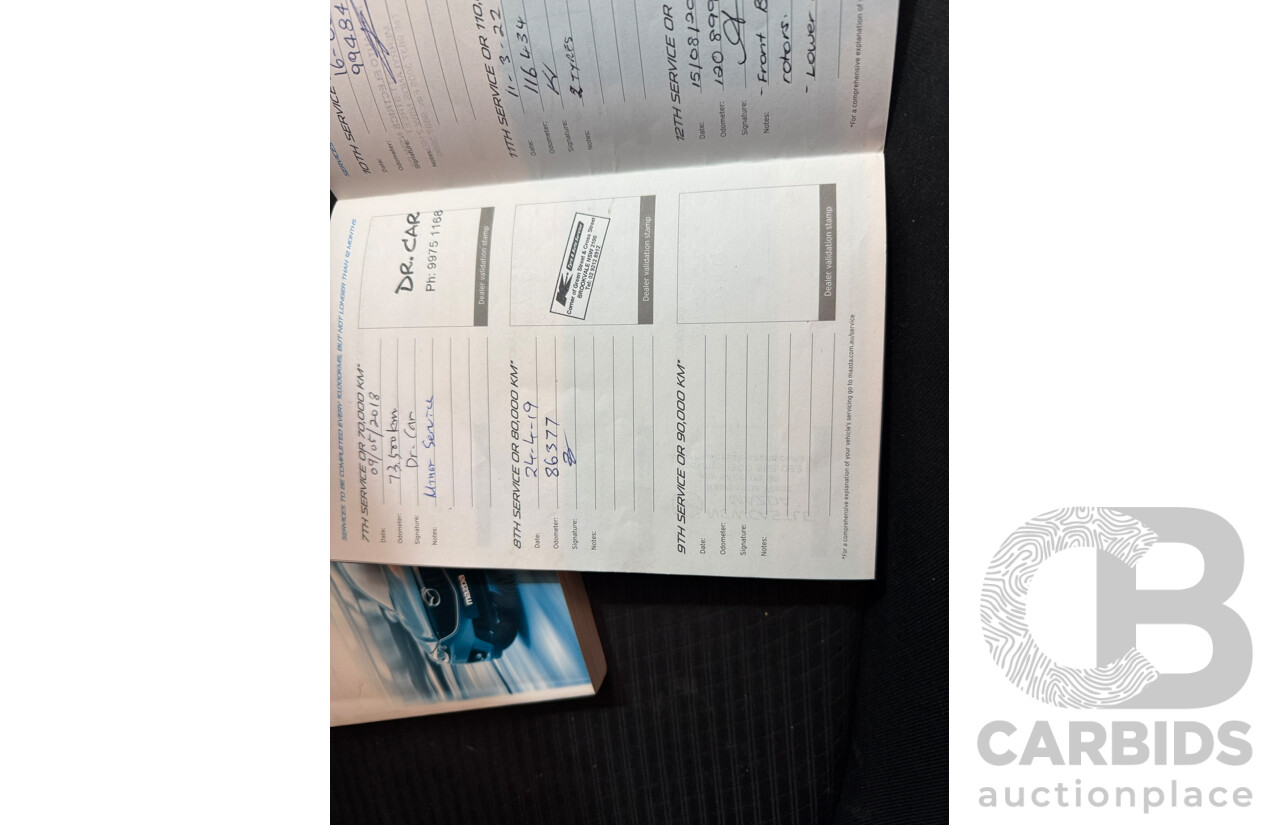 SERVICES
10TH SERVICE
Date:
Odometer: 99484
Signature:
Notes:
11TH SERVICE OR 110,
Date: 11-3-22
Odometer: 116434
Signature:
Notes: 2 TYRES
12TH SERVICE OR
Date: 15/08/20
Odometer: 120 899
Signature:
Notes: - Front B
rotors.
- Lower
*For a comprehensive explanation of
SERVICES TO BE COMPLETED EVERY 10,000KMS, BUT NOT LONGER THAN 12 MONTHS
7TH SERVICE OR 70,000 KM*
Date: 09/05/2018
Odometer: 73,500km
Signature: Dr. Car
Notes: Minor Service
DR. CAR
Ph: 9975 1168
Dealer validation stamp
8TH SERVICE OR 80,000 KM*
Date: 24-4-19
Odometer: 86377
Signature:
Notes:
Corner of Green Street & Cross Street
BROOKVALE NSW 2100
Dealer validation stamp
9TH SERVICE OR 90,000 KM*
Date:
Odometer:
Signature:
Notes:
Dealer validation stamp
*For a comprehensive explanation of your vehicle's servicing go to mazda.com.au/service
mazda
CB
CARBIDS
auctionplace